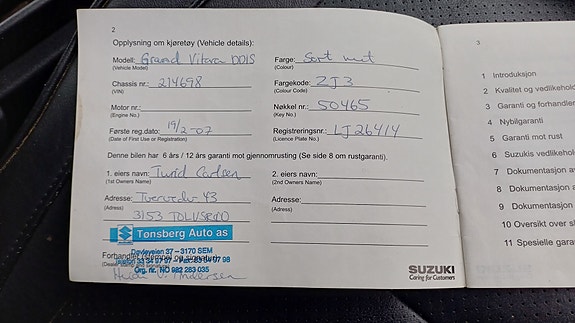 2
Opplysning om kjøretøy (Vehicle details):
Modell: Grand Vitara DDIS
(Vehicle Model)
Chassis nr.: 214698
(VIN)
Motor nr.:
(Engine No.)
Første reg.dato: 19/2-07
(Date of First Use or Registration)
Farge: Sort met
(Colour)
Fargekode: ZJ3
(Colour Code)
Nøkkel nr.: 50465
(Key No.)
Registreringsnr.: LJ26414
(Licence Plate No.)
Denne bilen har 6 års / 12 års garanti mot gjennomrusting (Se side 8 om rustgaranti).
1. eiers navn: Turid Carlsen
(1st Owners Name)
Adresse: 43
(Adress)
3153 TOLVSRØD
2. eiers navn:
(2nd Owners Name)
Adresse:
(Adress)
Tønsberg Auto as
Døvleveien 37 – 3170 SEM
Org. nr. NO 982 283 035
SUZUKI
Caring for Customers
3
1 Introduksjon
2 Kvalitet og vedlikehold
3 Garanti og forhandler
4 Nybilgaranti
5 Garanti mot rust
6 Suzukis vedlikehold
7 Dokumentasjon av
8 Dokumentasjon
9 Dokumentasjon
10 Oversikt over
11 Spesielle